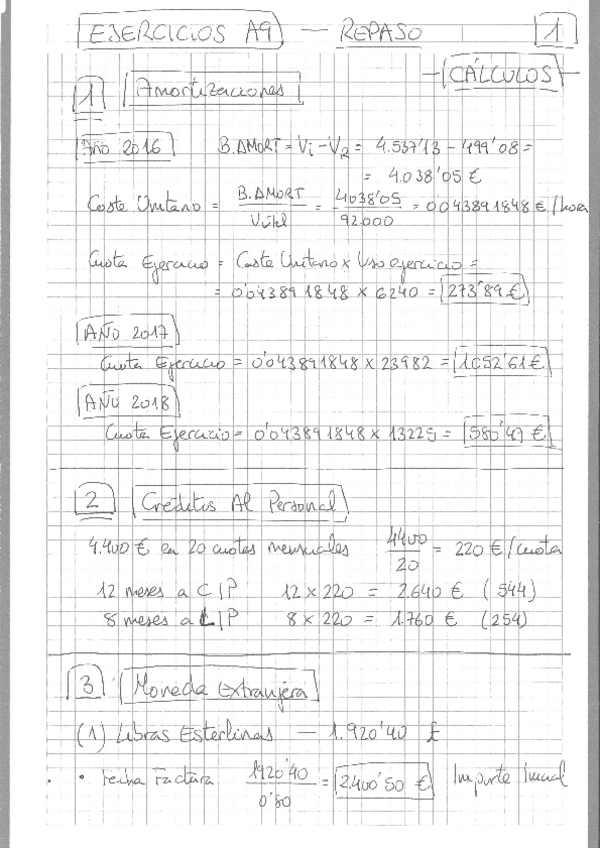 EJERCICIOS A9 — REPASO 1
— CÁLCULOS —
1 Amortizaciones
Año 2016 B.AMORT = Vi - V2 = 4.537'13 - 499'08 =
= 4.038'05 €
Coste Unitario = B.AMORT / Vútil = 4038'05 / 92.000 = 0'043891848 € / hora
Cuota Ejercicio = Coste Unitario x Uso ejercicio =
= 0'043891848 x 6240 = 273'89 €
AÑO 2017
Cuota Ejercicio = 0'043891848 x 23982 = 1.052'61 €
AÑO 2018
Cuota Ejercicio = 0'043891848 x 13225 = 580'47 €
2 Créditos Al Personal
4.400 € en 20 cuotas mensuales 4400 / 20 = 220 € / cuota
12 meses a C/P 12 x 220 = 2.640 € (544)
8 meses a L/P 8 x 220 = 1.760 € (254)
3 Moneda Extranjera
(1) Libras Esterlinas — 1.920'40 £
• Fecha Factura 1920'40 / 0'80 = 2.400'50 € Importe Inicial